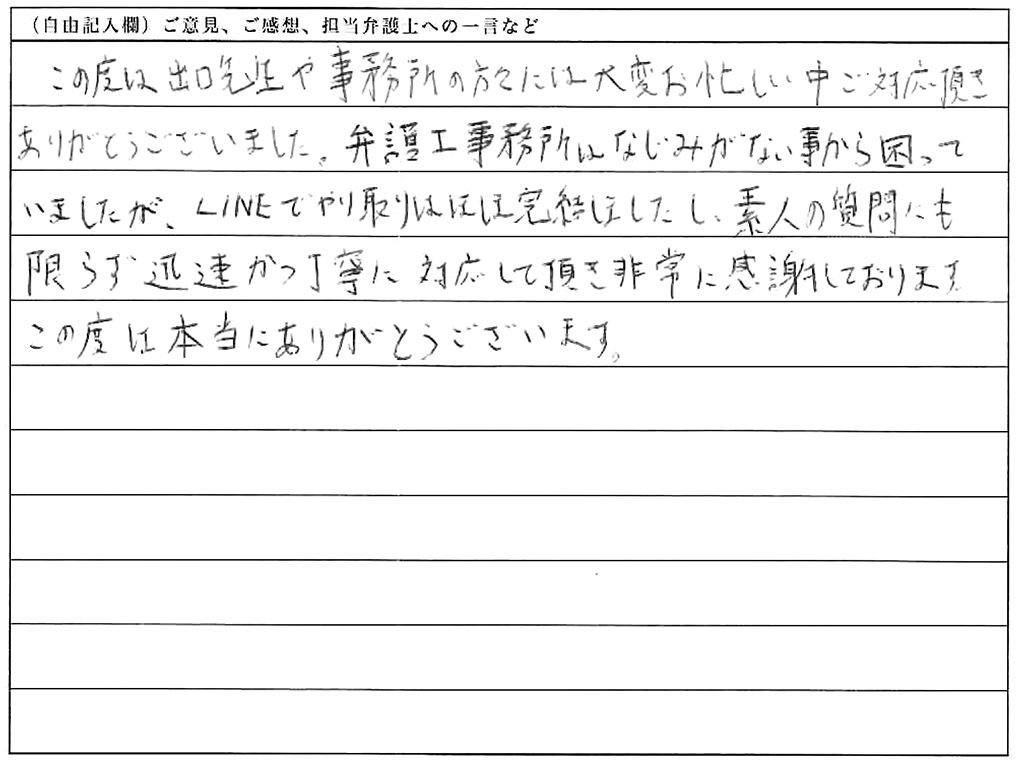 （自由記入欄）ご意見、ご感想、担当弁護士への一言など
この度は出口先生や事務所の方々には大変お忙しい中ご対応頂き
ありがとうございました。弁護士事務所はなじみがない事から困って
いましたが、LINEでやり取りはほぼ完結しましたし、素人の質問にも
限らず迅速かつ丁寧に対応して頂き非常に感謝しております
この度は本当にありがとうございます。